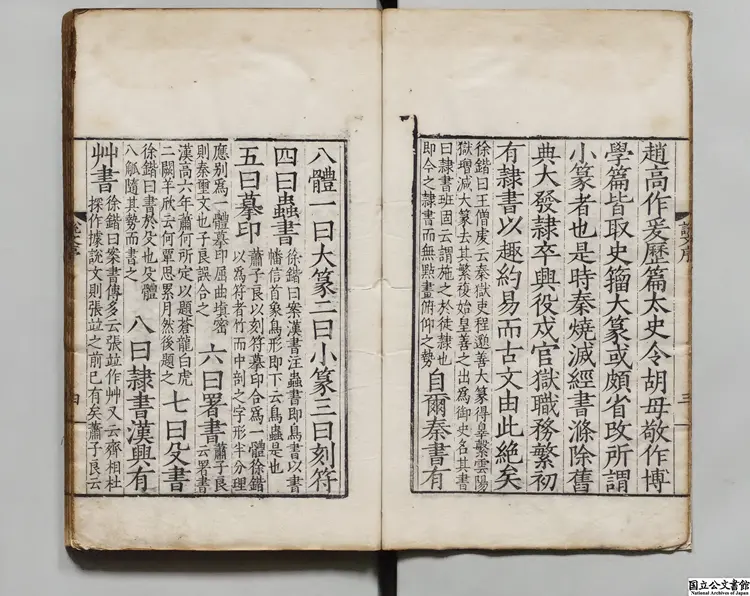 趙高作爰歷篇太史令胡母敬作博
學篇皆取史籀大篆或頗省改所謂
小篆者也是時秦燒滅經書滌除舊
典大發隷卒興役戍官獄職務繁初
有隷書以趣約易而古文由此絶矣
徐鍇曰王僧䖍云秦獄吏程邈善大篆得辠繫雲陽
獄增減大篆去其繁複始皇善之出爲御史名其書
曰隷書班固云謂施之於徒隷也
即今之隷書而無點畫俯仰之勢
自爾秦書有
八體一曰大篆二曰小篆三曰刻符
四曰蟲書
徐鍇曰案漢書注蟲書即鳥書以書
幡信首象鳥形即下云鳥蟲是也
五曰摹印
蕭子良以刻符摹印合爲一體徐鍇
以爲符者竹而中剖之字形半分理
應別爲一體摹印屈曲填密
則秦璽文也子良誤合之
六曰署書
蕭子良
云署書
漢高六年蕭何所定以題蒼龍白虎
二闕羊欣云何覃思累月然後題之
七曰殳書
徐鍇曰書於殳也殳體
八觚隨其勢而書之
八曰隷書漢興有
艸書
徐鍇曰案書傳多云張竝作艸又云齊相杜
探作據說文則張竝之前已有矣蕭子良云
國立公文書館
National Archives of Japan